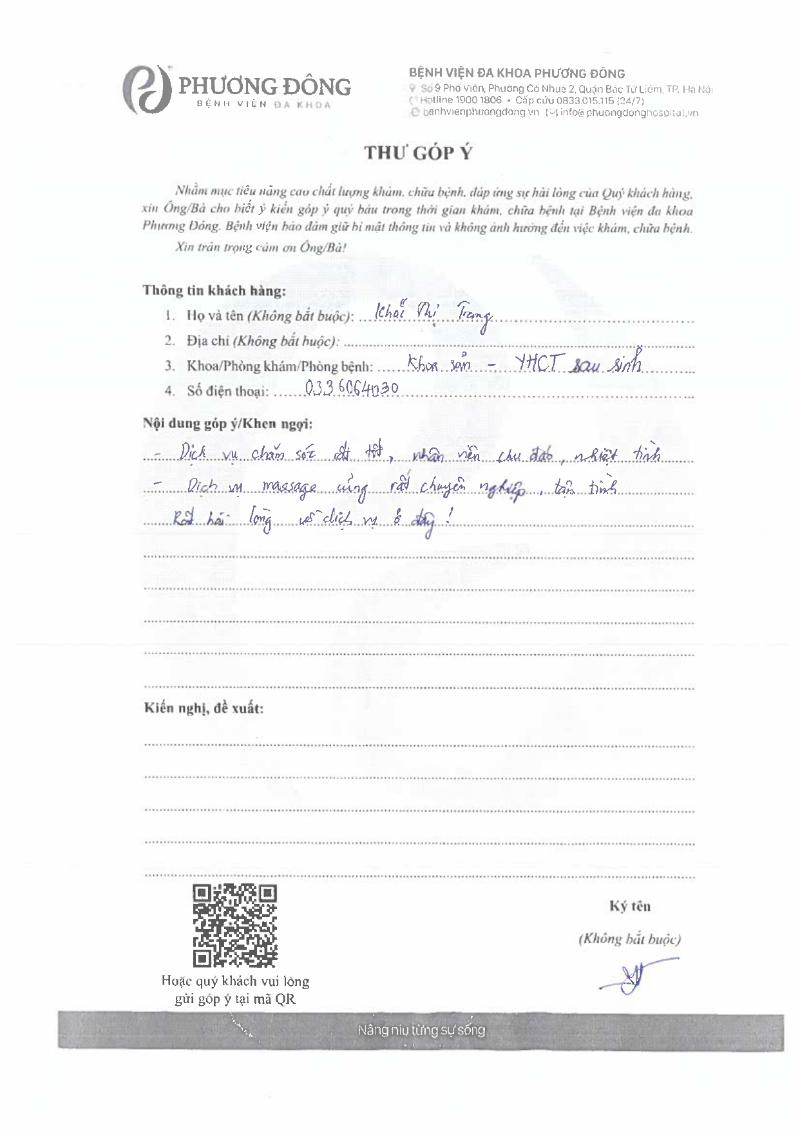 PHƯƠNG ĐÔNG
BỆNH VIỆN ĐA KHOA
BỆNH VIỆN ĐA KHOA PHƯƠNG ĐÔNG
Số 9 Phố Viên, Phường Cổ Nhuế 2, Quận Bắc Từ Liêm, TP. Hà Nội
Hotline 1900 1806 • Cấp cứu 0833.015.115 (24/7)
benhvienphuongdong.vn info@phuongdonghospital.vn
THƯ GÓP Ý
Nhằm mục tiêu nâng cao chất lượng khám, chữa bệnh, đáp ứng sự hài lòng của Quý khách hàng,
xin Ông/Bà cho biết ý kiến góp ý quý báu trong thời gian khám, chữa bệnh tại Bệnh viện đa khoa
Phương Đông. Bệnh viện bảo đảm giữ bí mật thông tin và không ảnh hưởng đến việc khám, chữa bệnh.
Xin trân trọng cảm ơn Ông/Bà!
Thông tin khách hàng:
1. Họ và tên (Không bắt buộc): Thị Trang
2. Địa chỉ (Không bắt buộc):
3. Khoa/Phòng khám/Phòng bệnh: Khoa sản - YHCT sau sinh
4. Số điện thoại:
Nội dung góp ý/Khen ngợi:
- Dịch vụ chăm sóc rất tốt, nhân viên chu đáo, nhiệt tình
- Dịch vụ massage cũng rất chuyên nghiệp, tận tình
Rất hài lòng với dịch vụ ở đây!
Kiến nghị, đề xuất:
Ký tên
(Không bắt buộc)
Hoặc quý khách vui lòng
gửi góp ý tại mã QR
Nâng niu từng sự sống